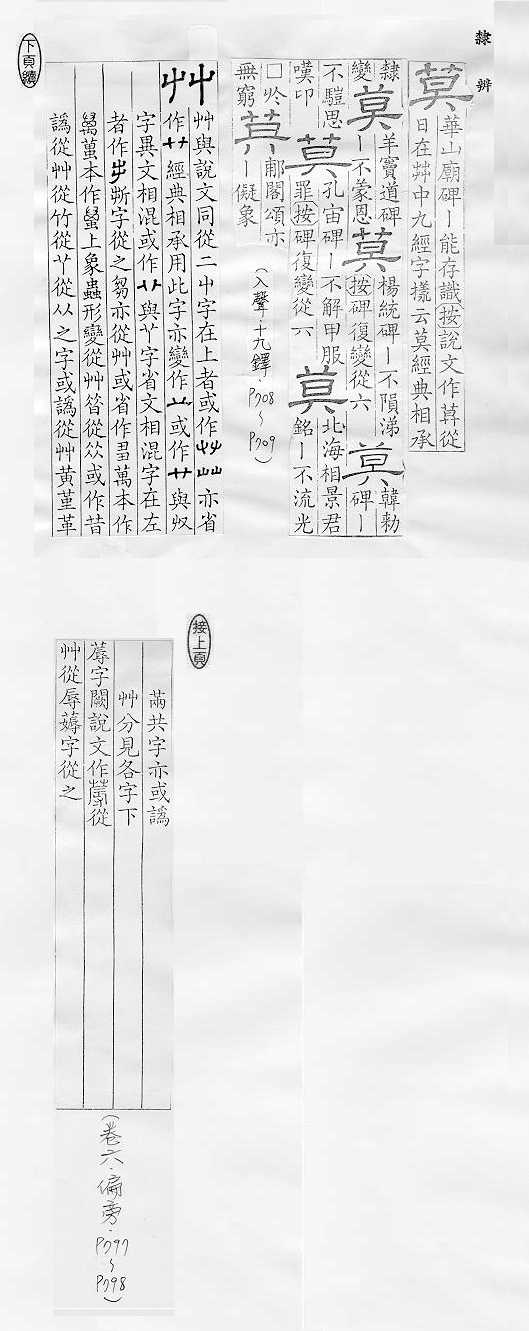 隸辨
莫華山廟碑ー能存識按說文作茻從
日在茻中九經字樣云莫經典相承
隸變莫羊竇道碑ー不蒙恩莫楊統碑ー不隕涕按碑復變從六莫韓勑碑ー
不騜思嘆卬莫孔宙碑ー不解甲服罪按碑復變從六莫北海相景君銘ー不流光
□於無窮莫郙閣頌亦ー儗象
(入聲.十九鐸.P708~P709)
艸艸與說文同從二屮字在上者或作艸䒑亦省
作艹經典相承用此字亦變作䒑或作艹與収
字異文相混或作䒑與丫字省文相混字在左
者作㞢斯字從之芻亦從艸或省作刍萬本作
萬萬本作蠆上象蟲形變從艸昔從㸚或作昔
譌從艸從竹從丫從从之字或譌從艸黄堇革
下頁續
接上頁
萳共字亦或譌
艸分見各字下
蓐字闕說文作蓐從
艸從辱薅字從之
(卷六.偏旁.P797~P798)